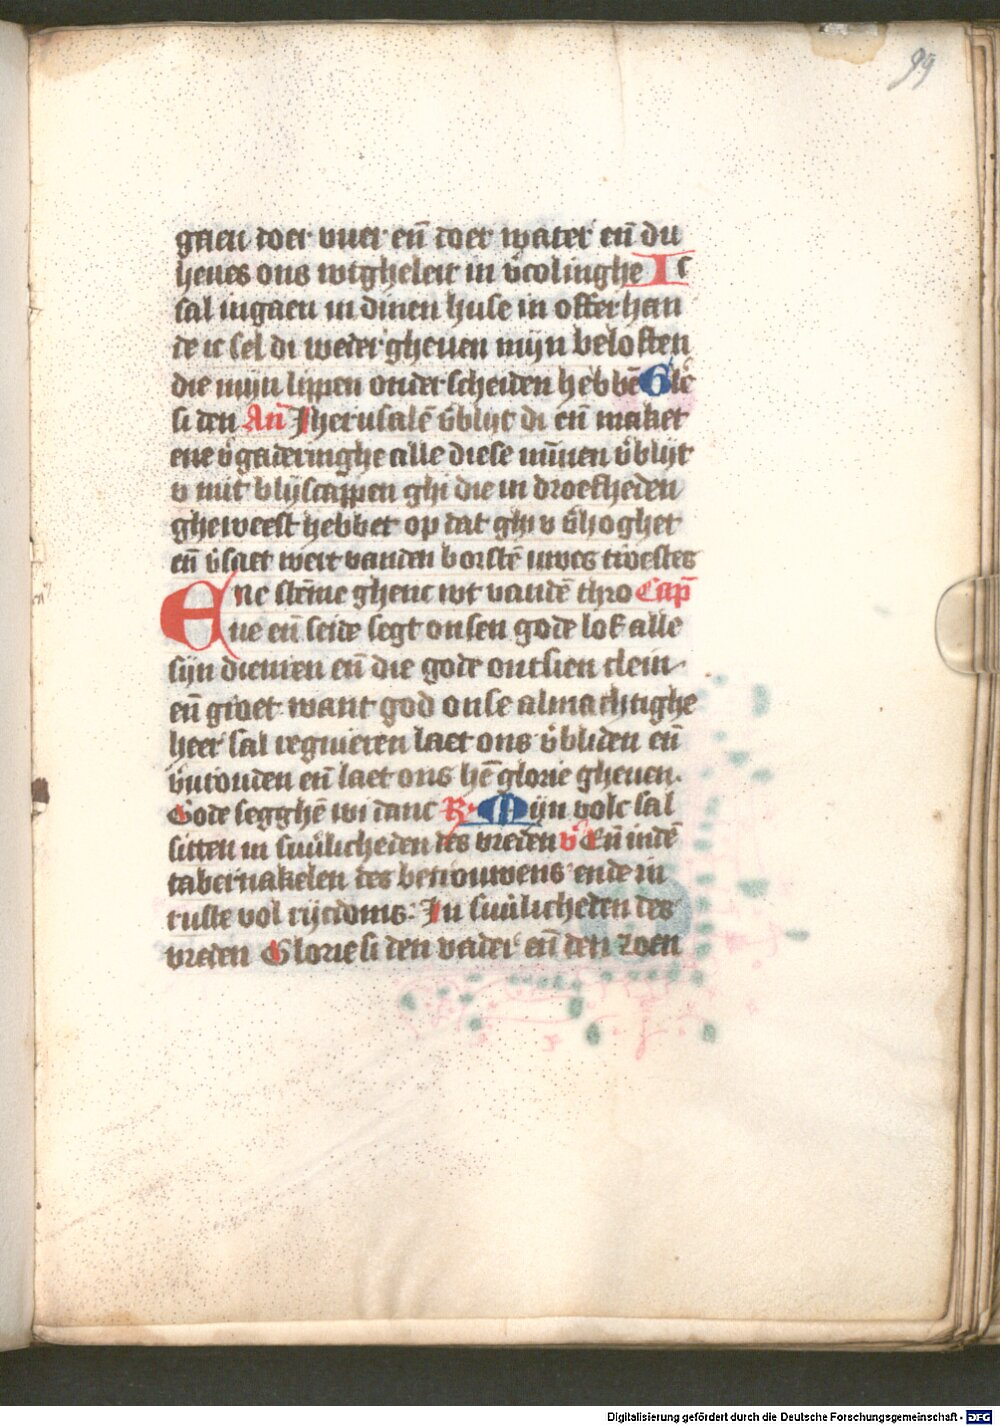 99
gaen doer vuer en̄ doer water en̄ du
heues ons wtgheleit in v̄colinghe Ic
sal ingaen in dinen huse in offerhan
de ic sel di weder gheuen mijn beloften
die mijn lippen onderscheiden hebbē Glē
si den An̄ Jherusalē v̄blijt di en̄ maket
ene v̄gaderinghe alle diese mīnen v̄blijt
v mit blijscappen ghi die in droefheden
gheweest hebbet op dat ghi v v̄hoghet
en̄ v̄saet wert vanden borstē uwes troestes
Ene stēme ghenc wt vandē thro Cap̄
ne en̄ seide segt onsen gode lof alle
sijn dienren en̄ die gode ontsien clein
en̄ groet want god onse almachtighe
heer sal regnieren laet ons v̄bliden en̄
v̄urouden en̄ laet ons hē glorie gheuen.
Gode segghē wi danc R. Mijn volc sal
sitten in suūlicheden des vreden v̄ En̄ indē
tabernakelen des betrouwens ende in
ruste vol rijcdoms. In suūlicheden des
vreden Glorie si den vader en̄ den zoen
Digitalisierung gefördert durch die Deutsche Forschungsgemeinschaft - DFG